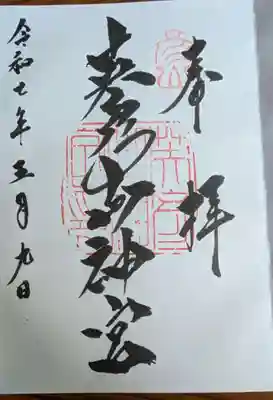 奉拝
英彦山神宮
令和七年五月九日